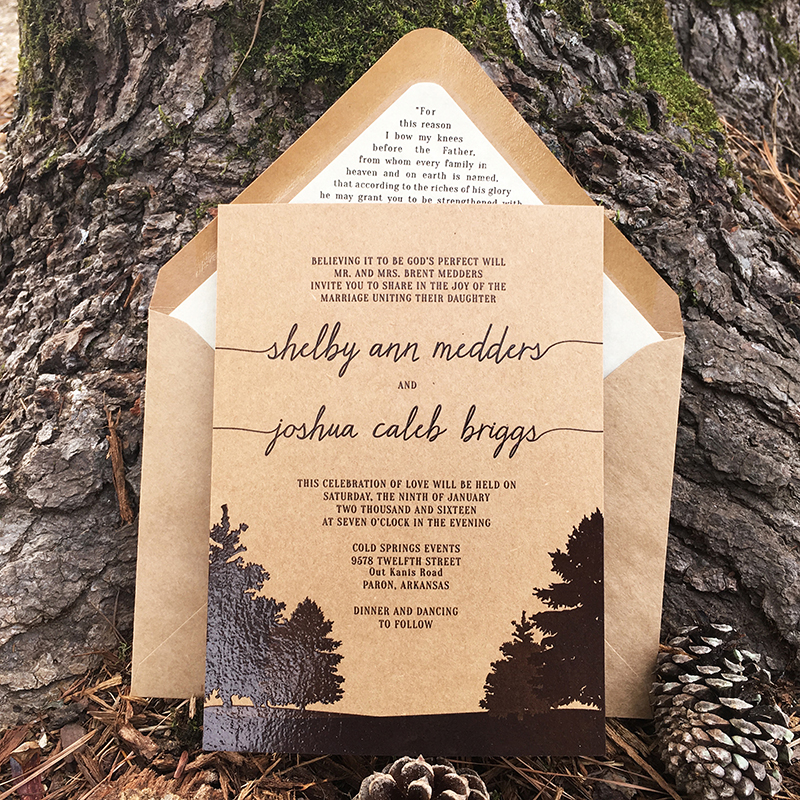 "For
this reason
I bow my knees
before the Father,
from whom every family in
heaven and on earth is named,
that according to the riches of his glory
he may grant you to be strengthened with
BELIEVING IT TO BE GOD'S PERFECT WILL
MR. AND MRS. BRENT MEDDERS
INVITE YOU TO SHARE IN THE JOY OF THE
MARRIAGE UNITING THEIR DAUGHTER
shelby ann medders
AND
joshua caleb briggs
THIS CELEBRATION OF LOVE WILL BE HELD ON
SATURDAY, THE NINTH OF JANUARY
TWO THOUSAND AND SIXTEEN
AT SEVEN O'CLOCK IN THE EVENING
COLD SPRINGS EVENTS
9578 TWELFTH STREET
Out Kanis Road
PARON, ARKANSAS
DINNER AND DANCING
TO FOLLOW